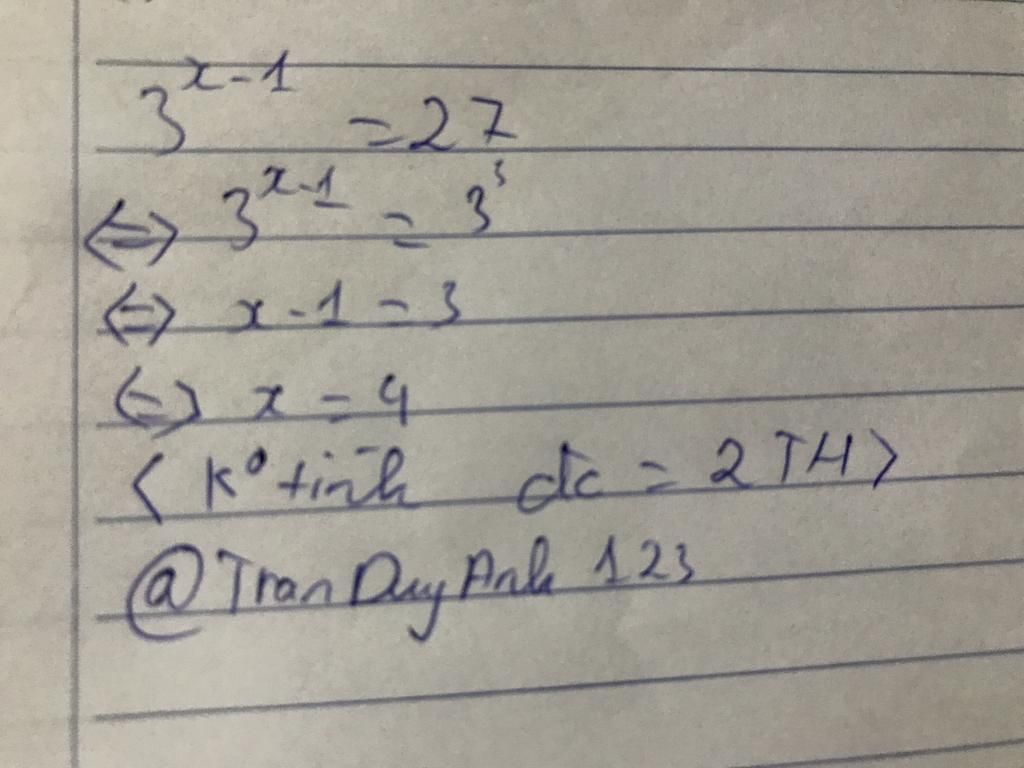 3^{x-1} = 27
⇔ 3^{x-1} = 3^3
⇔ x - 1 = 3
⇔ x = 4
< K° tính đc = 2 TH >
@TranDuyAnh 123